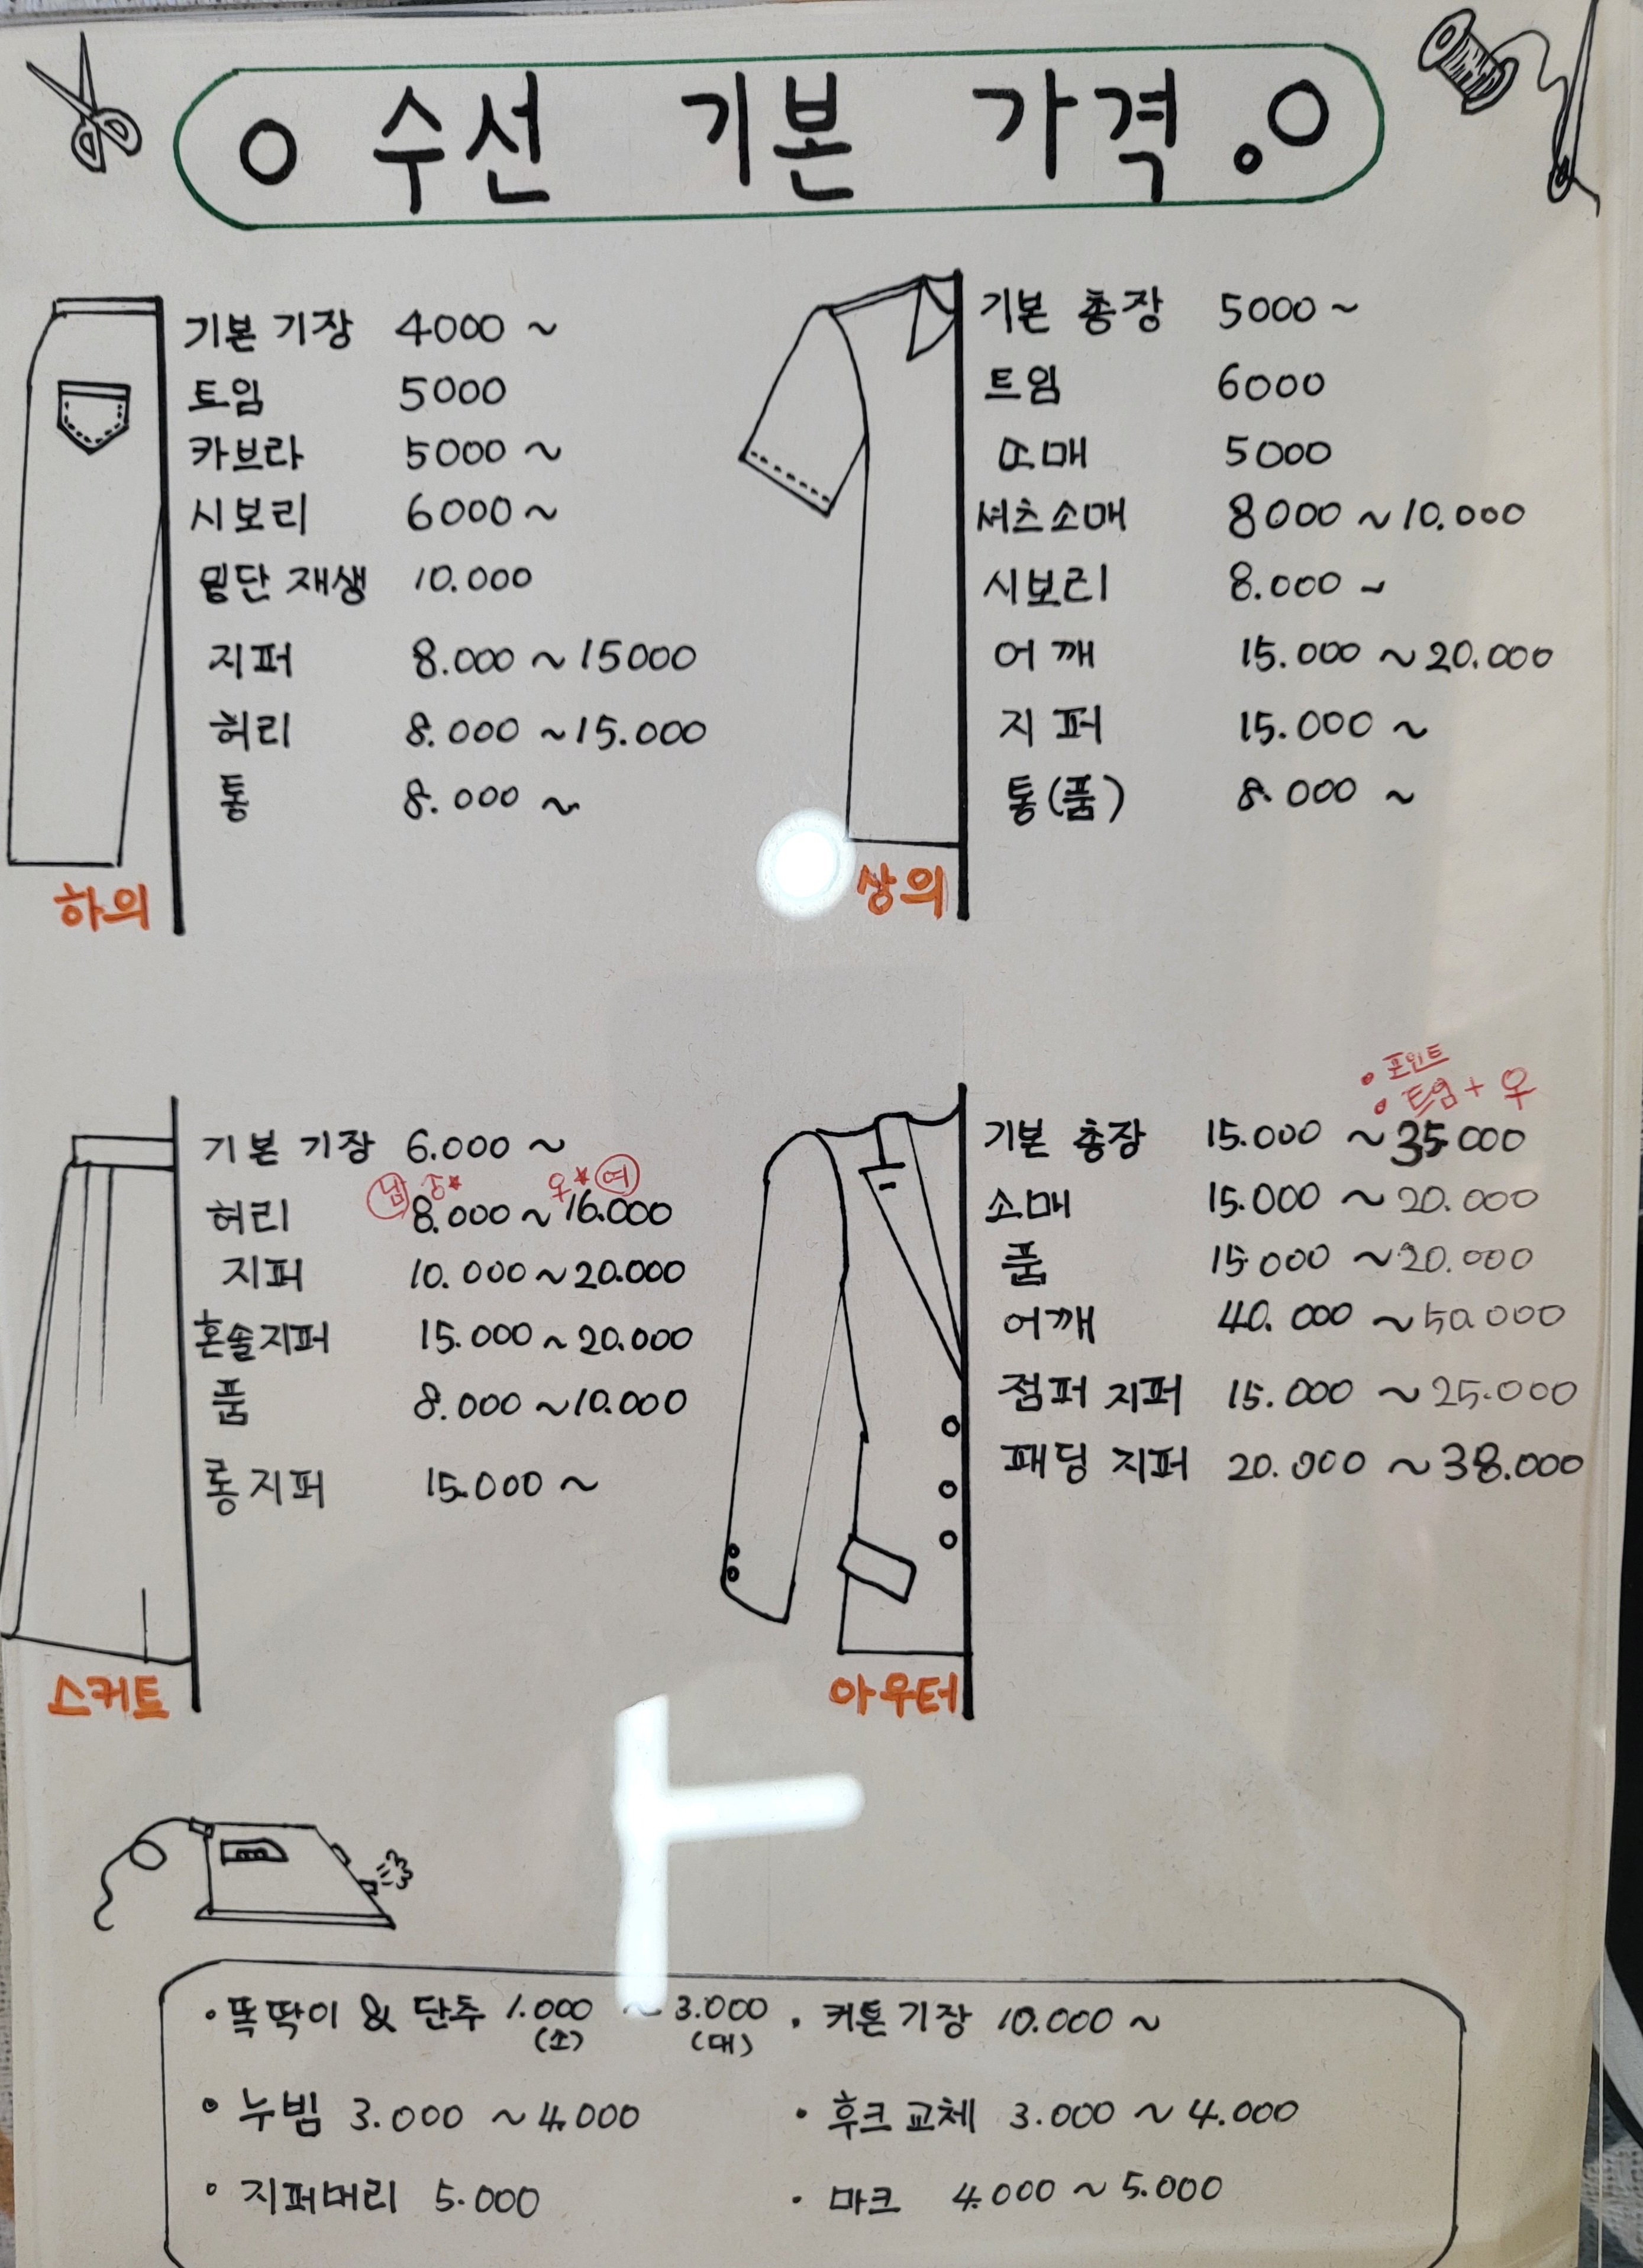 수선 기본 가격
기본 기장 4000 ~
트임 5000
카브라 5000 ~
시보리 6000 ~
밑단 재생 10.000
지퍼 8.000 ~ 15000
허리 8.000 ~ 15.000
통 8.000 ~
하의
기본 총장 5000 ~
트임 6000
소매 5000
셔츠소매 8000 ~ 10.000
시보리 8.000 ~
어깨 15.000 ~ 20.000
지퍼 15.000 ~
통(품) 8.000 ~
상의
기본 기장 6.000 ~
남 여
허리 8.000 ~ 16.000
지퍼 10.000 ~ 20.000
혼솔지퍼 15.000 ~ 20.000
품 8.000 ~ 10.000
롱지퍼 15.000 ~
스커트
• 포인트
• 트임 + 우
기본 총장 15.000 ~ 35000
소매 15.000 ~ 20.000
품 15.000 ~ 20.000
어깨 40.000 ~ 50.000
점퍼 지퍼 15.000 ~ 25.000
패딩 지퍼 20.000 ~ 38.000
아우터
• 똑딱이 & 단추 1.000 ~ 3.000
(소) (대)
• 커튼기장 10.000 ~
• 누빔 3.000 ~ 4.000
• 후크교체 3.000 ~ 4.000
• 지퍼머리 5.000
• 마크 4.000 ~ 5.000